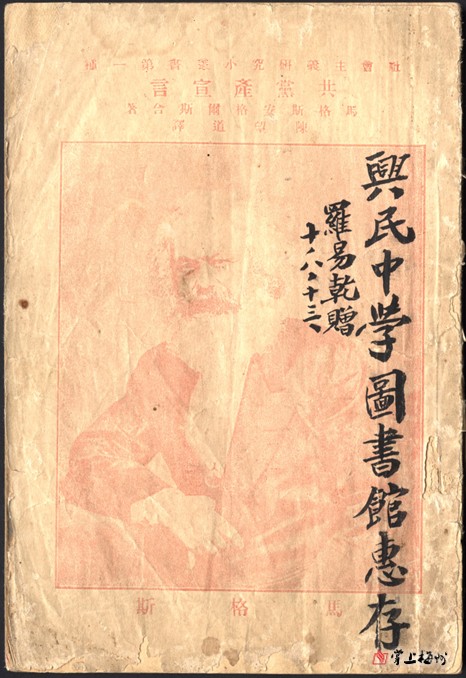 社會主義研究小叢書第一種
共黨產宣言
馬格斯安格爾斯合著
陳望道譯
興民中学圖書館惠存
羅易乾贈
十、八、十三、
馬格斯
掌上梅州